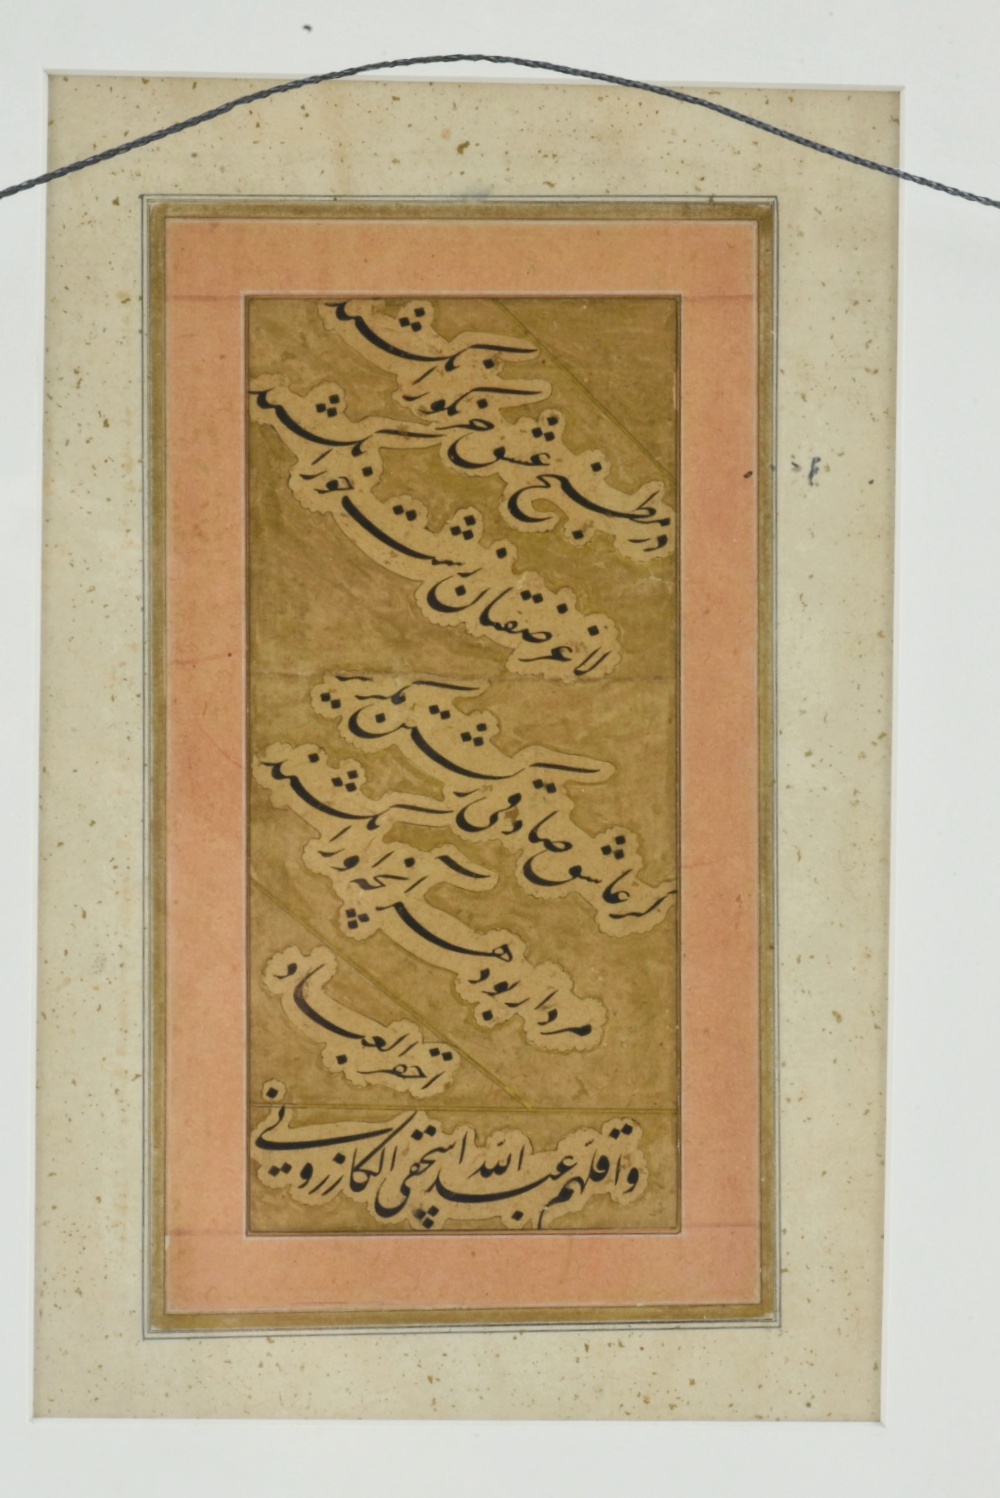 در مطبخ عشق جز نکو را نکشند
لاغر صفتان زشت خو را نکشند
کر عاشق صادقی ز کشتن مکریز
مردار بود هر آنچه او را نکشند
احقر العباد
واقلهم عبد الله اسحقی الکازرونی